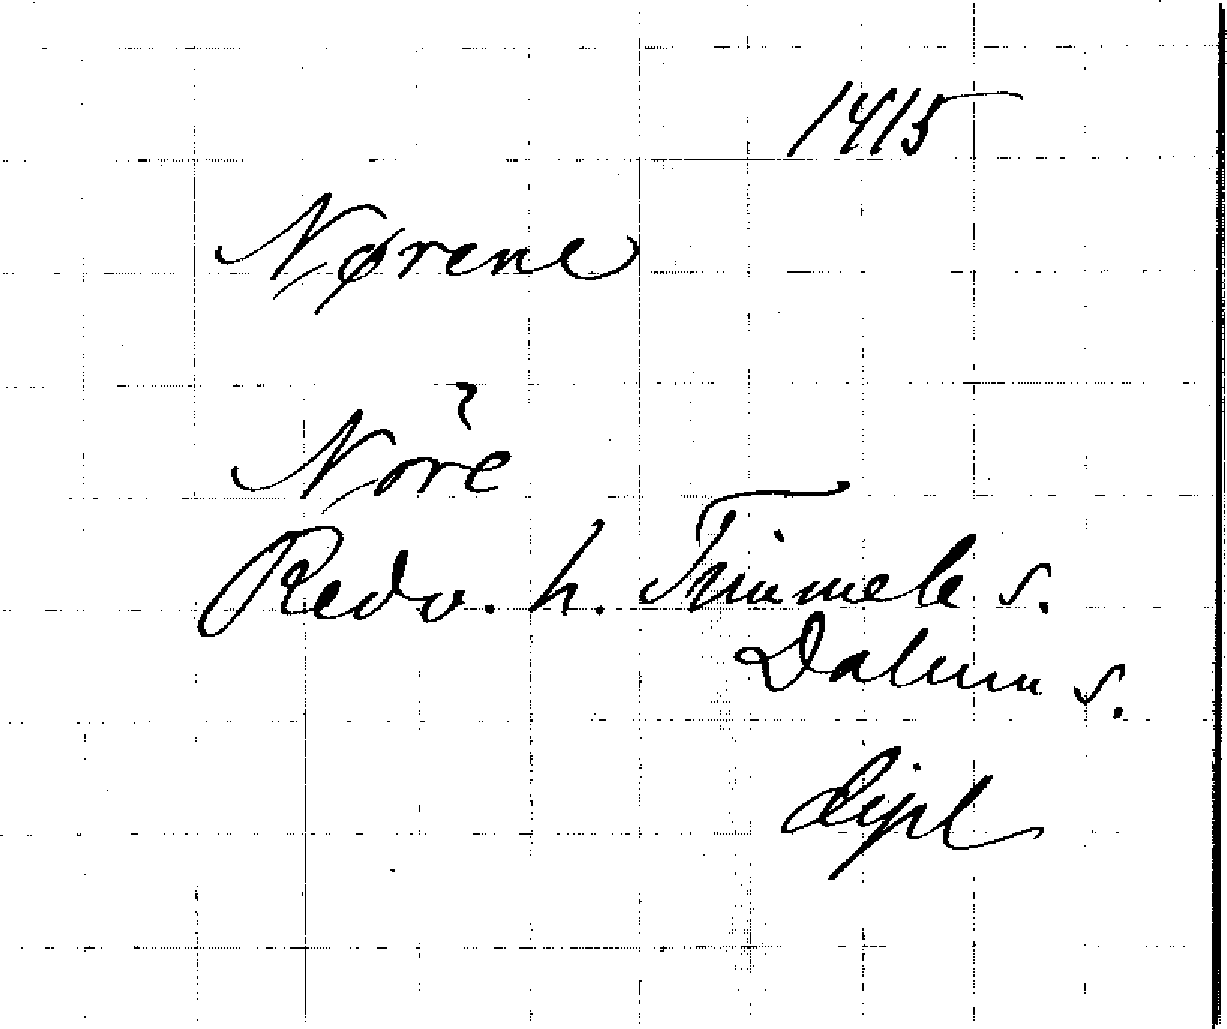 1415
Nørene
Nore
Redv. h. Timmele s.
Dalum s.
dipl